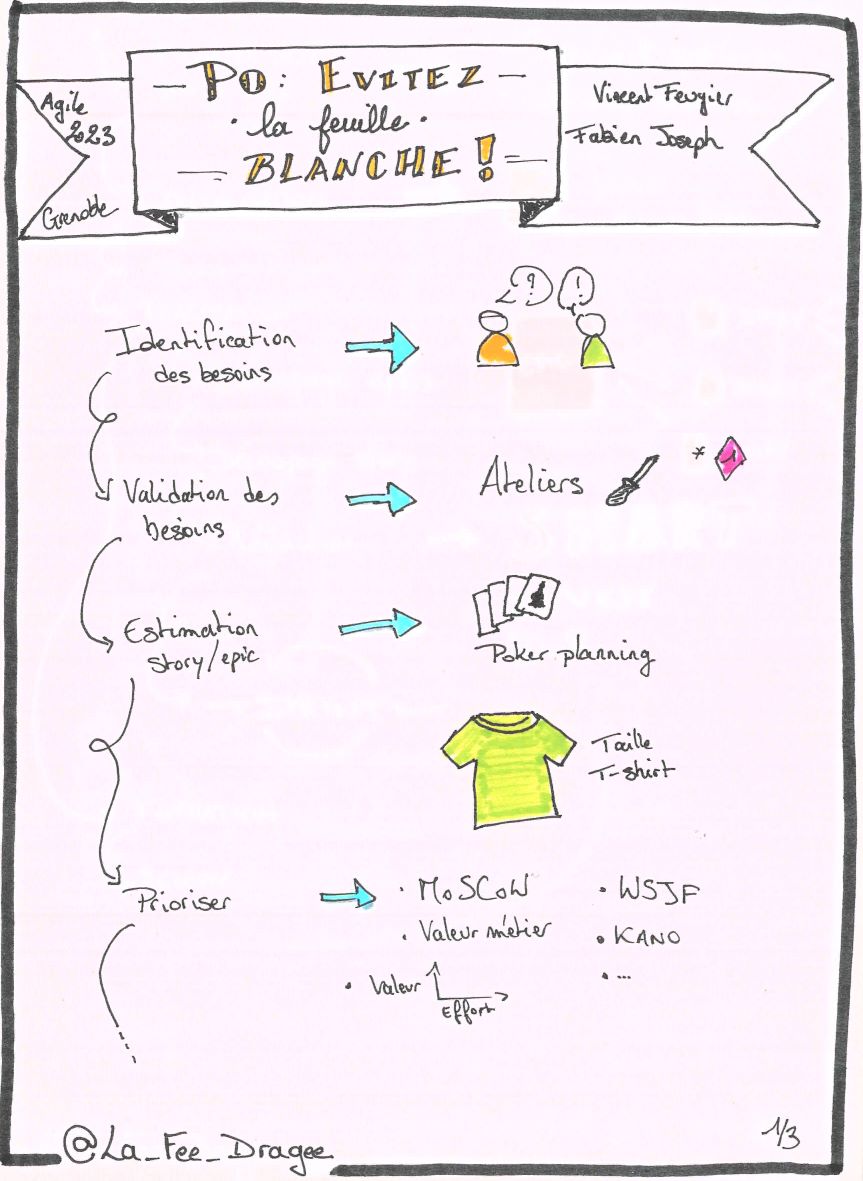 Agile
2023
Grenoble
— PO: EVITEZ —
• la feuille •
— BLANCHE ! —
Vincent Feugier
Fabien Joseph
? !
Identification
des besoins
Validation des
besoins
Ateliers
* 1
Estimation
story/epic
Poker planning
Taille
T-shirt
Prioriser
• MoSCoW
• Valeur métier
• Valeur
Effort
• WSJF
• KANO
• ...
@La_Fee_Dragee
1/3